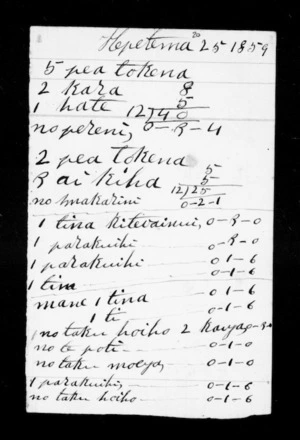 Hepetema 25 1859
5 pea tokena
2 kara 8
1 hate 5
12)40
no pereni, 0-3-4
2 pea tokena
5
3 ai kiha 5
12)25
no makarini 0-2-1
1 tina kitewainui, 0-3-0
1 parakuihi 0-3-0
1 parakuihi 0-1-6
1 tina 0-1-6
mane 1 tina 0-1-6
1 ti 0-1-6
no taku hoiho 2
no te poti 0-1-0
no taku moega, 0-1-0
1 parakuihi, 0-1-6
no taku hoiho 0-1-6